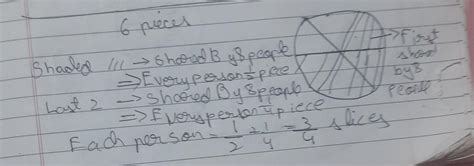 6 pieces
Shaded /// → Shared By 8 people
⇒ Every person = piece
Last 2 → Shared By 8 people
⇒ Every person 1/4 piece
Each person = 1/2 + 1/4 = 3/4 slices
→ First
shared
by 8
people